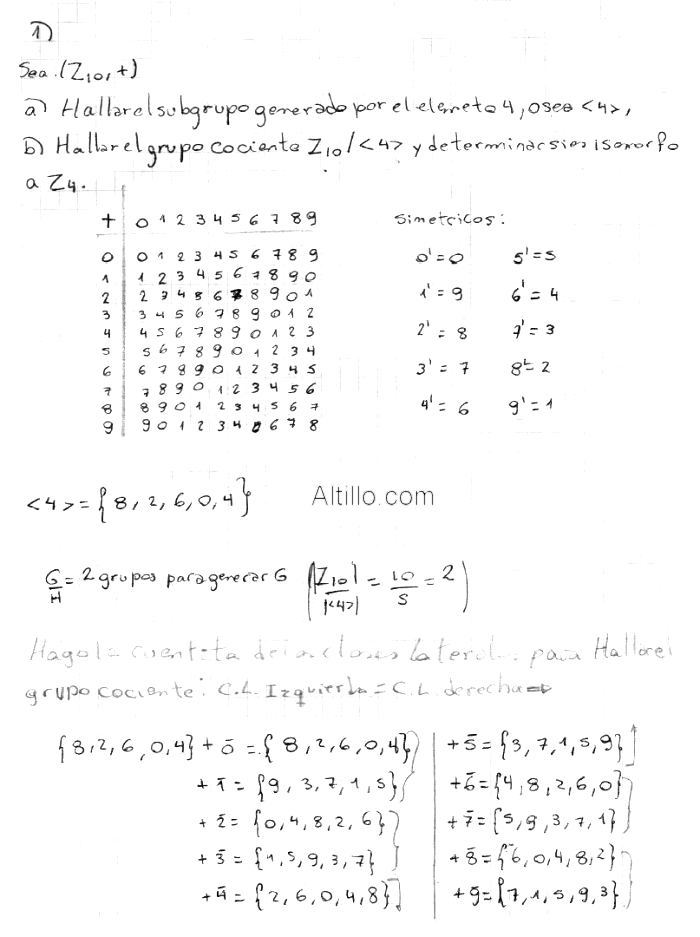 1)
Sea (Z10, +)
a) Hallar el subgrupo generado por el elemeto 4, o sea <4>,
b) Hallar el grupo cociente Z10/<4> y determinar si es isomorfo
a Z4.
+ 0 1 2 3 4 5 6 7 8 9
0 0 1 2 3 4 5 6 7 8 9
1 1 2 3 4 5 6 7 8 9 0
2 2 3 4 5 6 7 8 9 0 1
3 3 4 5 6 7 8 9 0 1 2
4 4 5 6 7 8 9 0 1 2 3
5 5 6 7 8 9 0 1 2 3 4
6 6 7 8 9 0 1 2 3 4 5
7 7 8 9 0 1 2 3 4 5 6
8 8 9 0 1 2 3 4 5 6 7
9 9 0 1 2 3 4 5 6 7 8
Simetricos:
0'=0 5'=5
1'=9 6'=4
2'=8 7'=3
3'=7 8'=2
4'=6 9'=1
<4> = {8, 2, 6, 0, 4}
Altillo.com
G/H = 2 grupos para generar G (|Z10|/|<4>| = 10/5 = 2)
Hago la cuentita de las clases laterales para Hallar el
grupo cociente: C.L. Izquierda = C.L. derecha ⇒
{8,2,6,0,4} + 0̄ = {8,2,6,0,4}
+ 1̄ = {9,3,7,1,5}
+ 2̄ = {0,4,8,2,6}
+ 3̄ = {1,5,9,3,7}
+ 4̄ = {2,6,0,4,8}
+ 5̄ = {3,7,1,5,9}
+ 6̄ = {4,8,2,6,0}
+ 7̄ = {5,9,3,7,1}
+ 8̄ = {6,0,4,8,2}
+ 9̄ = {7,1,5,9,3}